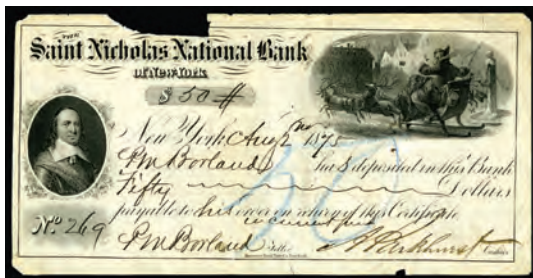 THE
Saint Nicholas National Bank
of New York
$ 50 #
New York Aug 2 1875
P M Borland has deposited in this Bank
Fifty Dollars
payable to his order on return of this Certificate
in current funds
No 269
P M Borland Teller Cashier